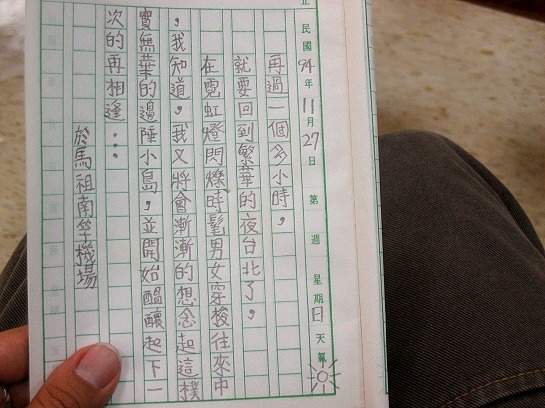 民國94年11月27日 第 週 星期日 天氣
再過一個多小時,
就要回到繁華的夜台北了,
在霓虹燈閃爍、時髦男女穿梭往來中
,我知道,我又將會漸漸的想念起這樸
實無華的邊陲小島,並開始醞釀起下一
次的再相逢...
於馬祖南竿機場